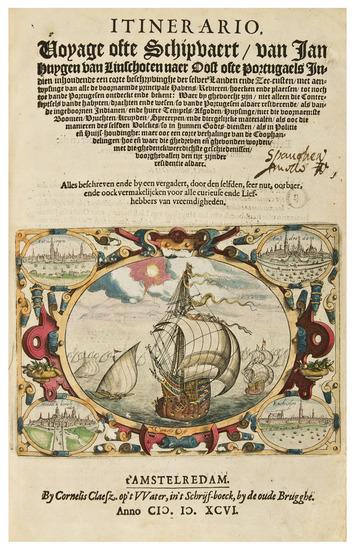 ITINERARIO,
Voyage ofte Schipvaert / van Jan
Huygen van Linschoten naer Oost ofte Portugaels In-
dien inhoudende een corte beschryvinghe der selver Landen ende Zee-custen / met aen-
wysinge van alle de voornaemde principale Havens / Revieren / hoecken ende plaetsen / tot noch
toe vande Portugesen ontdeckt ende bekent: Waer by ghevoecht zijn / niet alleen die Conter-
feytsels vande habyten / drachten ende wesen / so vande Portugesen aldaer residerende / als van-
de ingeboornen Indianen / ende huere Tempels / Afgoden / Huysinge / met die voornaemste
Boomen / Vruchten / Kruyden / Speceryen / ende diergelijcke materialen / als ooc die
manieren des selfden Volckes / so in hunnen Godts-diensten / als in Politie
en Huijs-houdinghe: maer ooc een corte verhalinge van de Coophan-
delingen / hoe en waer die ghedreven en ghevonden worden /
met die ghedenckweerdichste geschiedenissen /
voorghevallen den tijt zijnder
residentie aldaer.
Alles beschreven ende by een vergadert, door den selfden, seer nut, oorbaer,
ende oock vermakelijcken voor alle curieuse ende Lief-
hebbers van vreemdigheden.
t'AMSTELREDAM.
By Cornelis Claesz. op't VVater, in't Schrijf-boeck, by de oude Brugghe.
Anno CIↃ. IↃ. XCVI.